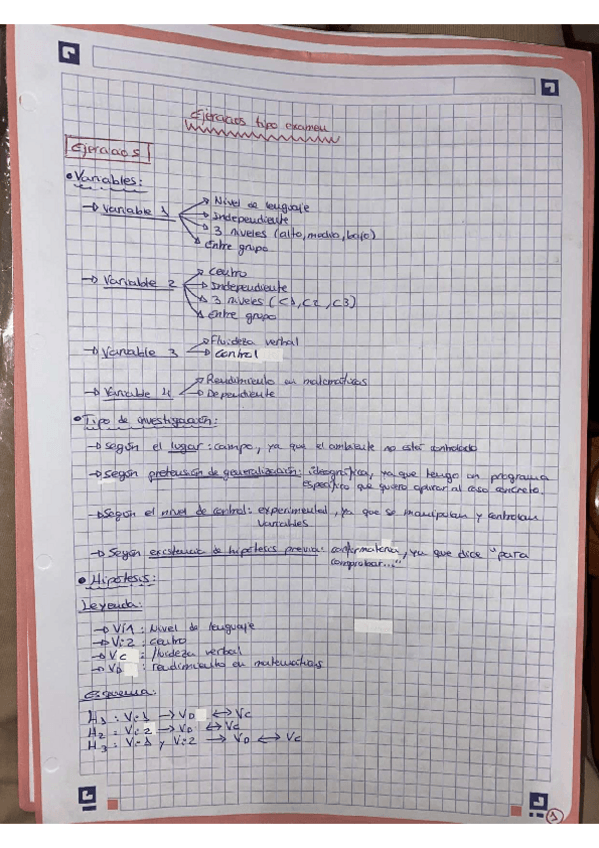 Ejercicios tipo examen
Ejercicio 5
• Variables:
→ Variable 1
→ Nivel de lenguaje
→ Independiente
→ 3 niveles (alto, medio, bajo)
→ Entre grupo
→ Variable 2
→ Centro
→ Independiente
→ 3 niveles (C1, C2, C3)
→ Entre grupo
→ Variable 3
→ Fluidez verbal
→ Control
→ Variable 4
→ Rendimiento en matemáticas
→ Dependiente
• Tipo de investigación:
→ Según el lugar: campo, ya que el ambiente no está controlado
→ Según pretensión de generalización: ideográfica, ya que tengo un programa
específico que quiero aplicar al caso concreto.
→ Según el nivel de control: experimental, ya que se manipulan y controlan
variables
→ Según existencia de hipótesis previa: confirmatoria, ya que dice "para
comprobar..."
• Hipótesis:
Leyenda:
→ Vi1: Nivel de lenguaje
→ Vi2: centro
→ Vc: fluidez verbal
→ VD: rendimiento en matemáticas
Esquema:
H1: Vi1 → VD ↔ Vc
H2: Vi2 → VD ↔ Vc
H3: Vi1 y Vi2 → VD ↔ Vc
1